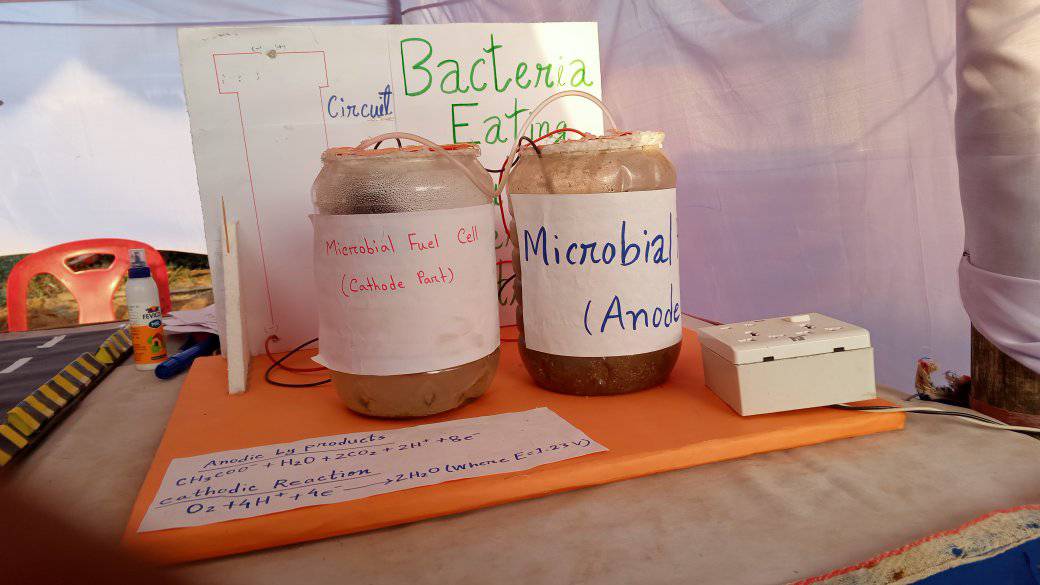 Bacteria
Eating
Circuit
Microbial Fuel Cell
(Cathode Part)
Microbial
(Anode
FEVICOL
Anodic by products
CH₃COO⁻ + H₂O + 2CO₂ + 2H⁺ + 8e⁻
Cathodic Reaction
O₂ + 4H⁺ + 4e⁻ ⟶ 2H₂O (Where E=1.23V)